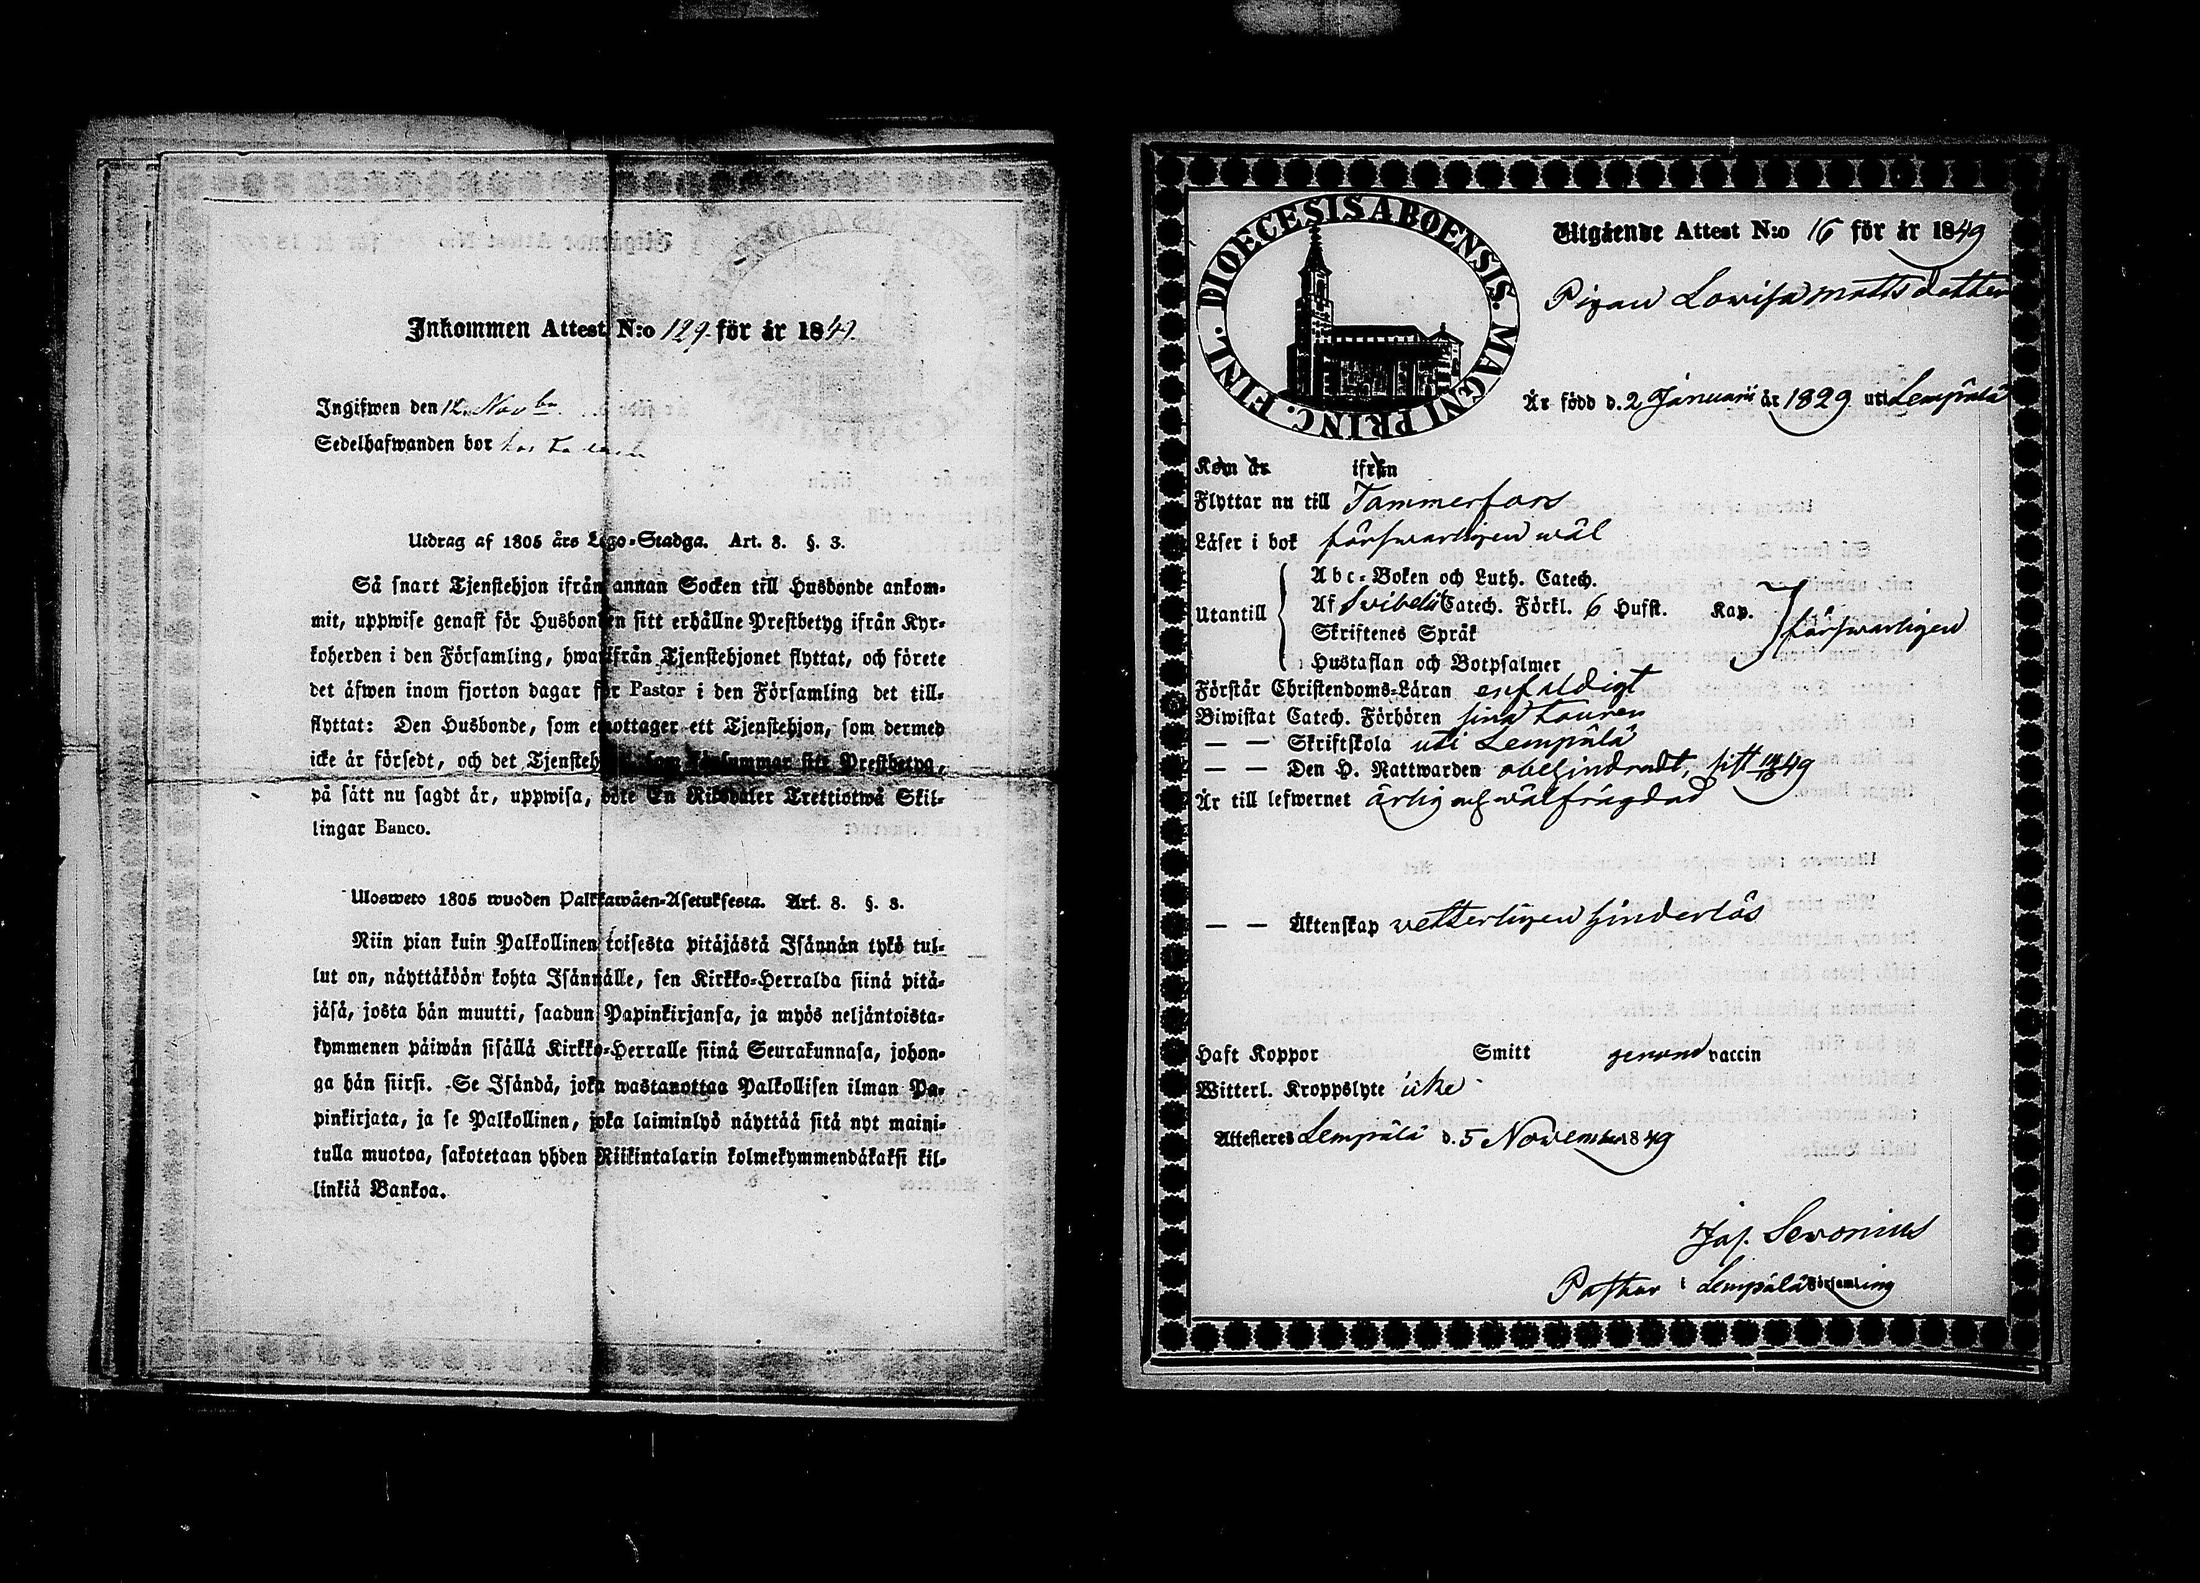 Inkommen Attest N:o 129. för år 1849.
Ingifwen den 12 Novbr
Sedelhafwanden bor hos
Utdrag af 1805 års Lego-Stadga. Art. 8. §. 3.
Så snart Tjenstehjon ifrån annan Socken till Husbonde ankom-
mit, uppwise genast för Husbonden sitt erhållne Prestbetyg ifrån Kyr-
koherden i den Församling, hwarifrån Tjenstehjonet flyttat, och förete
det äfwen inom fjorton dagar för Pastor i den Församling det till-
flyttat: Den Husbonde, som emottager ett Tjenstehjon, som dermed
icke är försedt, och det Tjenstehjon, som försummar sitt Prestbetyg,
på sätt nu sagdt är, uppwisa, böte En Riksdaler Trettiotwå Skil-
lingar Banco.
Ulosweto 1805 wuoden Palkkawäen-Asetuksesta. Art. 8. §. 3.
Niin pian kuin Palkollinen toisesta pitäjästä Isännän tykö tul-
lut on, näyttäköön kohta Isännälle, sen Kirkko-Herralda siinä pitä-
jäsä, josta hän muutti, saadun Papinkirjansa, ja myös neljäntoista-
kymmenen päiwän sisällä Kirkko-Herralle siinä Seurakunnasa, johon-
ga hän siirsi. Se Isändä, joka wastanottaa Palkollisen ilman Pa-
pinkirjata, ja se Palkollinen, joka laiminlyö näyttää sitä nyt maini-
tulla muotoa, sakotetaan yhden Riikintalarin kolmekymmendäkaksi kil-
linkiä Bankoa.
DIOECESIS ABOENSIS. MAGNI PRINC. FINL.
Utgående Attest N:o 16 för år 1849
Pigan Lovisa Mattsdotter
Är född d. 2 Januarii år 1829 uti Lempälä
Kom år ifrån
Flyttar nu till Tammerfors
Läser i bok förswarligen wäl
Abc-Boken och Luth. Catech.
Utantill Af Svibelii Catech. Förkl. 6 Hufst. Kap. förswarligen
Skriftenes Språk
Hustaflan och Botpsalmer
Förstår Christendoms-Läran enfaldigt
Biwistat Catech. Förhören sina Tourer
— — Skriftskola uti Lempälä
— — Den H. Nattwarden obehindradt, sist 49
Är till lefwernet ärlig och wälfrägdad
— — Äktenskap vetterligen hinderlös
Haft Koppor Smitt genom vaccin
Witterl. Kroppslyte icke
Attesteres Lempälä d. 5 November 1849
Jas. Sevonius
Pastor i Lempälä Församling